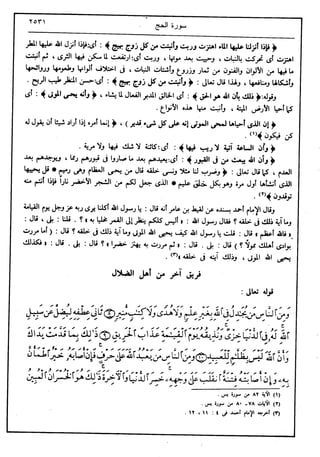 سورة الحج ٢٥٣١
﴿ فإذا أنزلنا عليها الماء اهتزت وربت وأنبتت من كل زوج بهيج ﴾ : أي : فإذا أنزل الله عليها المطر
اهتزت أي تحركت بالنبات ، وحييت بعد موتها ، وربت أي : ارتفعت لما سكن فيها الثرى ، ثم أنبتت
ما فيها من الألوان والفنون من ثمار وزروع وأشتات النبات ، في اختلاف ألوانها وطعومها وروائحها
وأشكالها ومنافعها ، ولهذا قال تعالى : ﴿ وأنبتت من كل زوج بهيج ﴾ : أي : حسن المنظر طيب الريح .
وقوله : ﴿ ذلك بأن الله هو الحق ﴾ : أي : الخالق المدبر الفعال لما يشاء ، ﴿ وأنه يحي الموتى ﴾ : أي
كما أحيا الأرض الميتة ، وأنبت منها هذه الأنواع .
﴿ إن الذي أحياها لمحي الموتى إنه على كل شيء قدير ﴾ ، ﴿ إنما أمره إذا أراد شيئا أن يقول له
كن فيكون ﴾ (١) .
﴿ وأن الساعة آتية لا ريب فيها ﴾ : أي : كائنة لا شك فيها ولا مرية .
﴿ وأن الله يبعث من في القبور ﴾ : أي : يعيدهم بعد ما صاروا في قبورهم رمما ، ويوجدهم بعد
العدم ، كما قال تعالى : ﴿ وضرب لنا مثلا ونسى خلقه قال من يحي العظام وهي رميم * قل يحييها
الذي أنشأها أول مرة وهو بكل خلق عليم * الذي جعل لكم من الشجر الأخضر ناراً فإذا أنتم منه
توقدون ﴾ (٢) .
وقال الإمام أحمد بسنده عن لقيط بن عامر أنه قال : يا رسول الله أكلنا يرى ربه عز وجل يوم القيامة
وما آية ذلك في خلقه ؟ فقال رسول الله : « أليس كلكم ينظر إلى القمر مخليا به ؟ » . قلنا : بلى ، قال :
« فالله أعظم » قال : قلت يا رسول الله كيف يحي الله الموتى وما آية ذلك في خلقه ؟ قال : « أما مررت
بوادي أهلك محولاً ؟ » قال : بلى . قال : « ثم مررت به يهتز خضرا » ؟ قال : بلى . قال : « فكذلك
يحي الله الموتى ، وذلك آيته في خلقه » (٣) .
فريق آخر من أهل الضلال
قوله تعالى :
وَمِنَ النَّاسِ مَن يُجَادِلُ فِي اللَّهِ بِغَيْرِ عِلْمٍ وَلَا هُدًى وَلَا كِتَابٍ مُّنِيرٍ ٨ ثَانِيَ عِطْفِهِ لِيُضِلَّ عَن سَبِيلِ
اللَّهِ لَهُ فِي الدُّنْيَا خِزْيٌ وَنُذِيقُهُ يَوْمَ الْقِيَامَةِ عَذَابَ الْحَرِيقِ ٩ ذَلِكَ بِمَا قَدَّمَتْ يَدَاكَ
وَأَنَّ اللَّهَ لَيْسَ بِظَلَّامٍ لِّلْعَبِيدِ ١٠ وَمِنَ النَّاسِ مَن يَعْبُدُ اللَّهَ عَلَى حَرْفٍ فَإِنْ أَصَابَهُ خَيْرٌ اطْمَأَنَّ
بِهِ وَإِنْ أَصَابَتْهُ فِتْنَةٌ انقَلَبَ عَلَى وَجْهِهِ خَسِرَ الدُّنْيَا وَالْآخِرَةَ ذَلِكَ هُوَ الْخُسْرَانُ الْمُبِينُ
(١) الآية ٨٢ من سورة يس .
(٢) الآيات ٧٨ - ٨٠ من سورة يس .
(٣) أخرجه الإمام أحمد في ٤ : ١١ ، ١٢ .